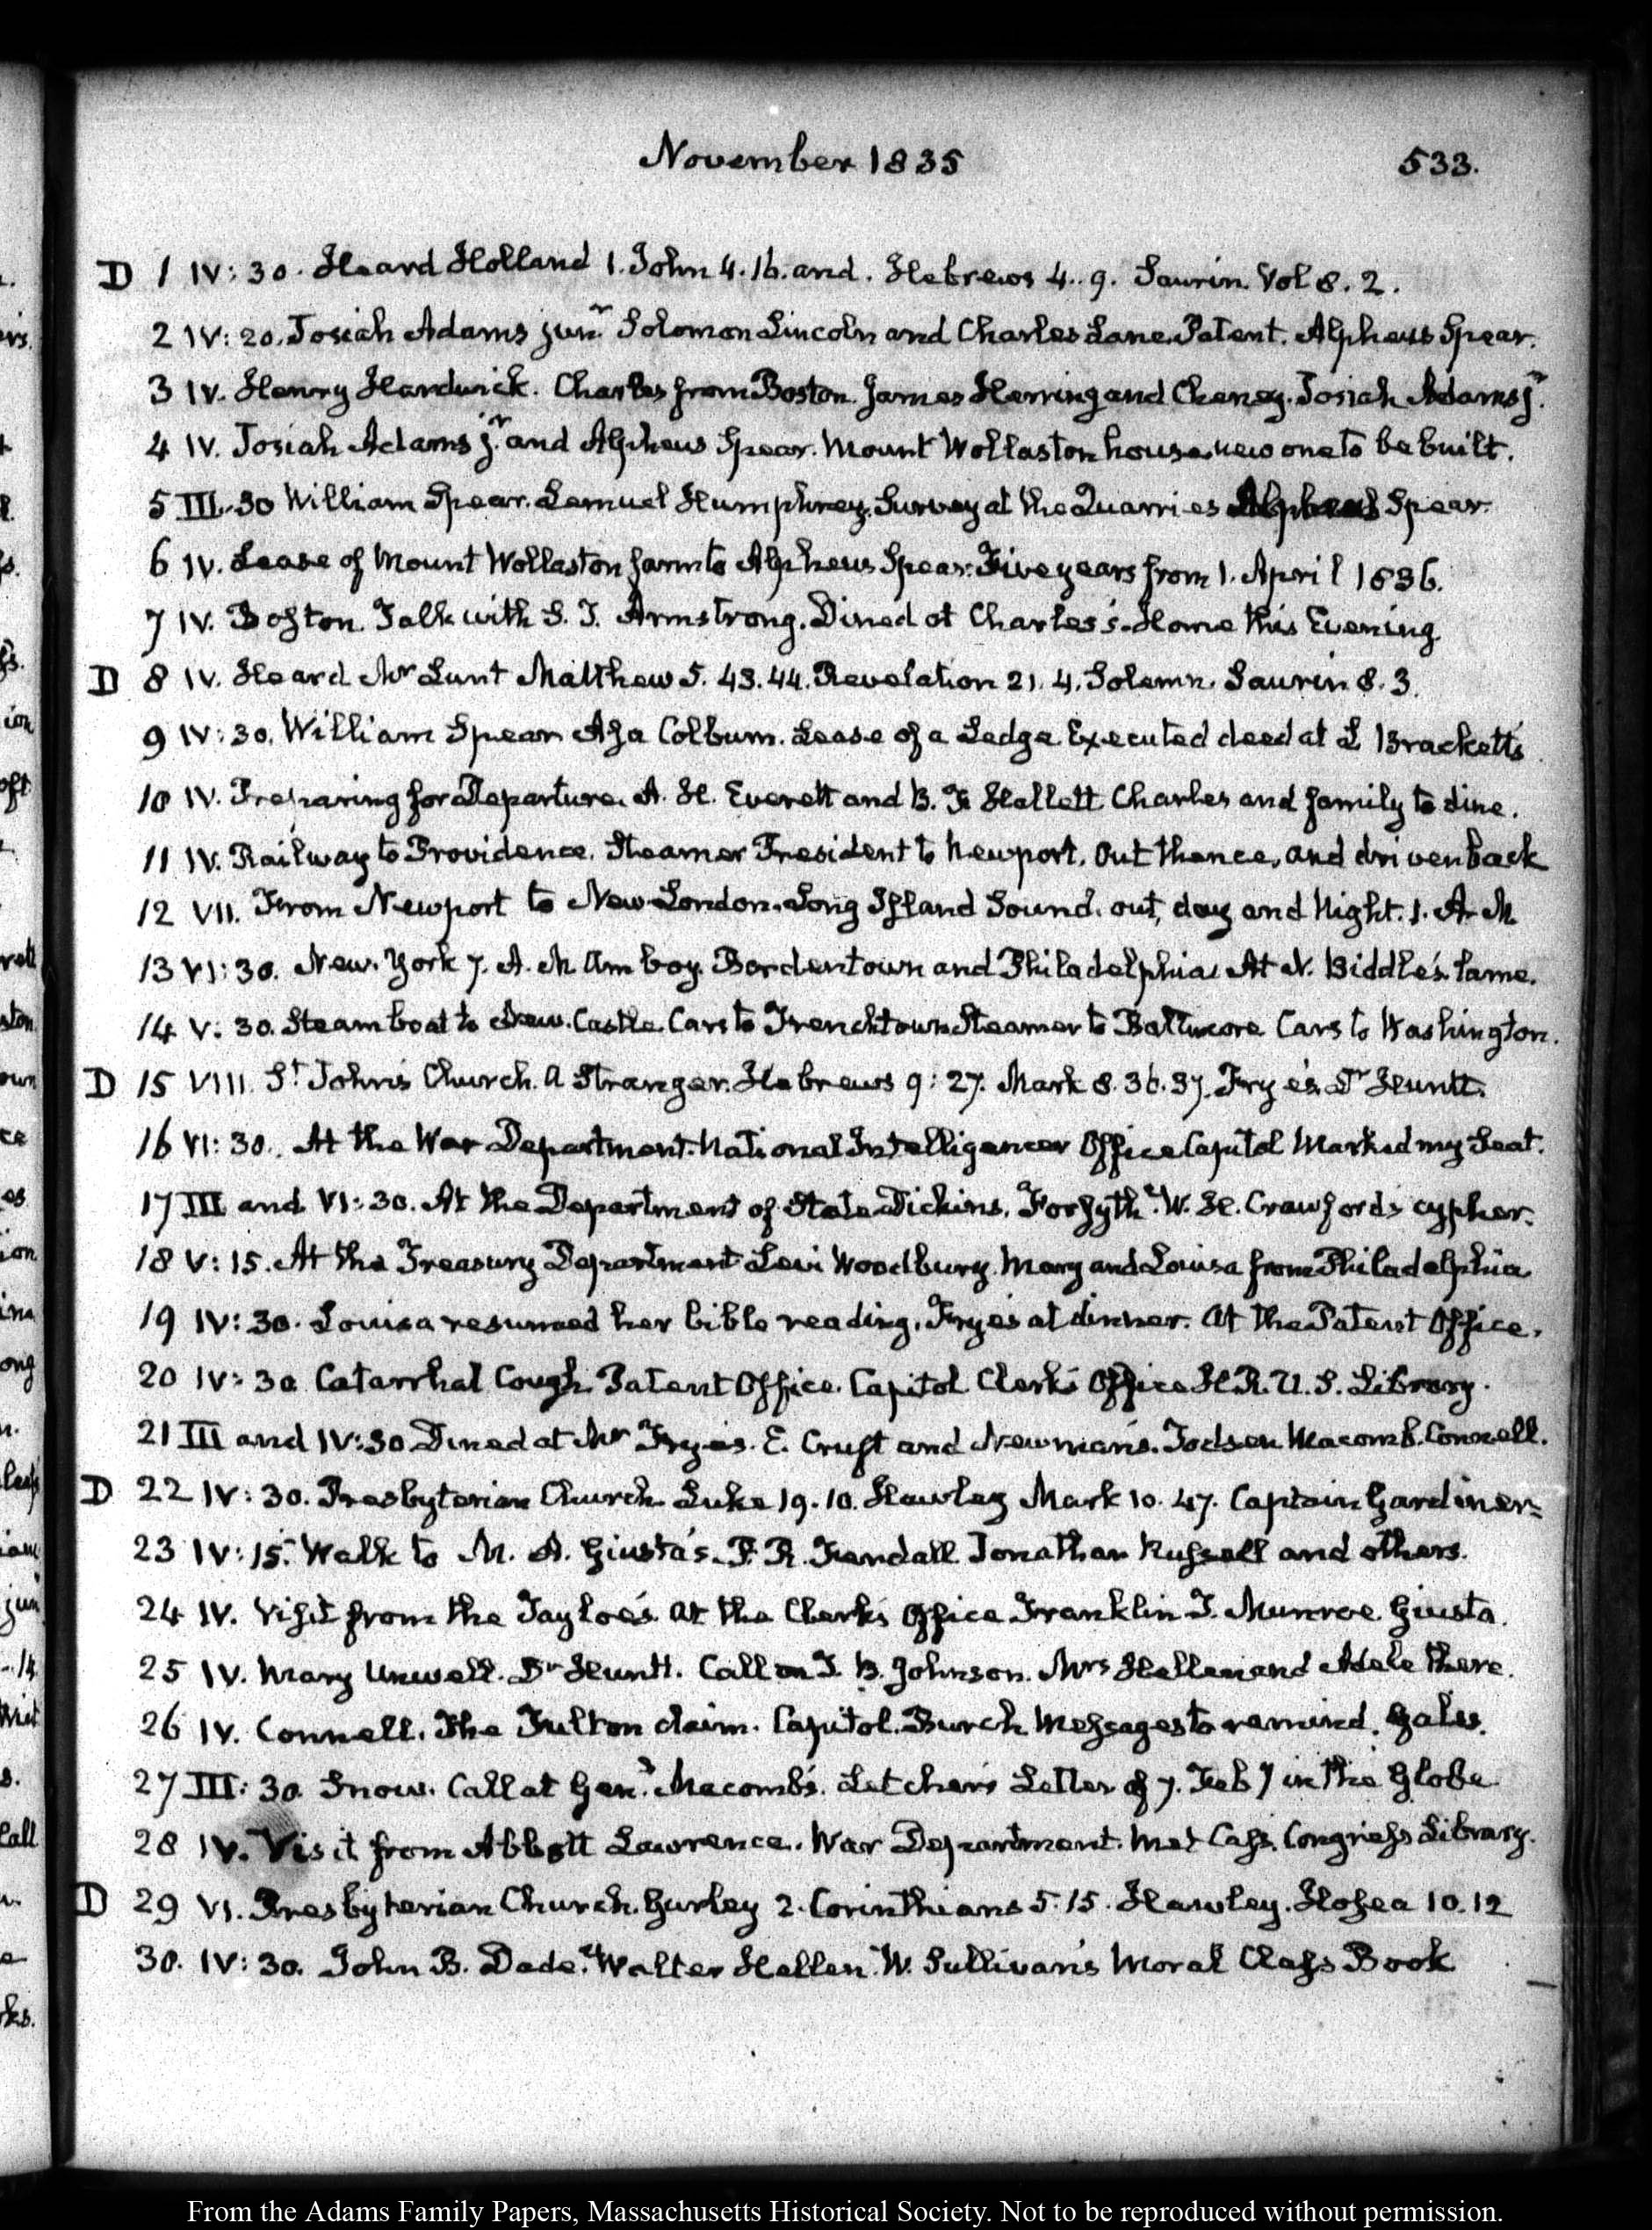 November 1835 533.
D 1 IV: 30. Heard Holland 1. John 4. 16. and. Hebrews 4. 9. Saurin. Vol 8. 2.
2 IV: 20. Josiah Adams junr. Solomon Lincoln and Charles Lane. Patent. Alpheus Spear.
3 IV. Henry Hardwick. Charles from Boston. James Herring and Cheney. Josiah Adams jr.
4 IV. Josiah Adams jr. and Alpheus Spear. Mount Wollaston house. new one to be built.
5 III. 30 William Spear. Lemuel Humphrey. Survey at the Quarries Alpheus Spear.
6 IV. Lease of Mount Wollaston farm to Alpheus Spear. Five years from 1. April 1836.
7 IV. Boston. Talk with S. T. Armstrong. Dined at Charles's. Home this Evening.
D 8 IV. Heard Mr Lunt Matthew 5. 43. 44. Revelation 21. 4. Solemn. Saurin 8. 3.
9 IV: 30. William Spear Asa Colburn. Lease of a Ledge. Executed deed at L Brackett's
10 IV. Preparing for Departure. A. H. Everett and B. F. Hallett. Charles and family to dine.
11 IV. Railway to Providence. Steamer President to Newport. Out thence, and driven back
12 VII. From Newport to New London. Long Island Sound. out, day and Night. 1. A. M
13 VI: 30. New. York 7. A. M Amboy. Bordentown and Philadelphia. At N. Biddle's. lame.
14 V: 30. Steamboat to New. Castle. Cars to Frenchtown Steamer to Baltimore Cars to Washington.
D 15 VIII. St John's Church. A Stranger. Hebrews 9: 27. Mark 8. 36. 37. Frye's. Dr Huntt.
16 VI: 30. At the War Department. National Intelligencer Office Capitol Marked my Seat.
17 III and VI: 30. At the Department of State Dickins. Forsyth. W. H. Crawford's cypher.
18 V: 15. At the Treasury Department Levi Woodbury. Mary and Louisa from Philadelphia
19 IV: 30. Louisa resumed her bible reading. Frye's at dinner. At the Patent Office.
20 IV: 30. Catarrhal Cough. Patent Office. Capitol Clerk's Office H. R. U. S. Library.
21 III and IV: 30 Dined at Mr Frye's. E. Cruft and Newman's. Macomb. Connell.
D 22 IV: 30. Presbyterian Church. Luke 19. 10. Hawley Mark 10. 47. Captain Gardiner
23 IV: 15. Walk to M. A. Giusta's. Kendall Jonathan Russell and others.
24 IV. Visit from the Tayloe's. At the Clerk's Office Franklin T. Munroe. Giusta.
25 IV. Mary Unwell. Dr Huntt. Call on J. B. Johnson. Mrs Hellen and Adele there.
26 IV. Connell. The Fulton claim. Capitol. Burch Messages to remind. Gales.
27 III: 30. Snow. Call at Genl. Macomb's. Letcher's Letter of 7. Feb in the Globe.
28 IV. Visit from Abbott Lawrence. War Department. Met Cass. Congress Library.
D 29 VI. Presbyterian Church. Gurley 2. Corinthians 5. 15. Hawley. Hosea 10. 12
30. IV: 30. John B. Dade. Walter Hellen. W. Sullivan's Moral Class Book
From the Adams Family Papers, Massachusetts Historical Society. Not to be reproduced without permission.